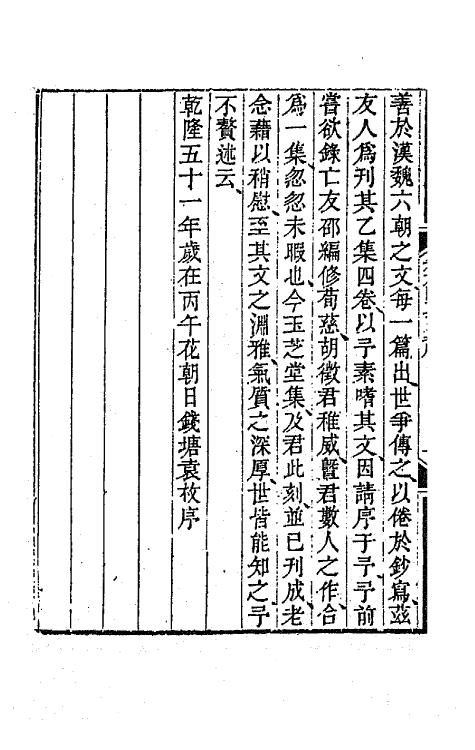 善於漢魏六朝之文每一篇出世爭傳之以倦於鈔寫茲
友人爲刊其乙集四卷以予素嗜其文因請序于予予前
嘗欲錄亡友邵編修荀慈胡徵君稚威曁君數人之作合
爲一集怱怱未暇也今玉芝堂集及君此刻並已刊成老
念藉以稍慰至其文之淵雅氣質之深厚世皆能知之予
不贅述云
乾隆五十一年歲在丙午花朝日錢塘袁枚序